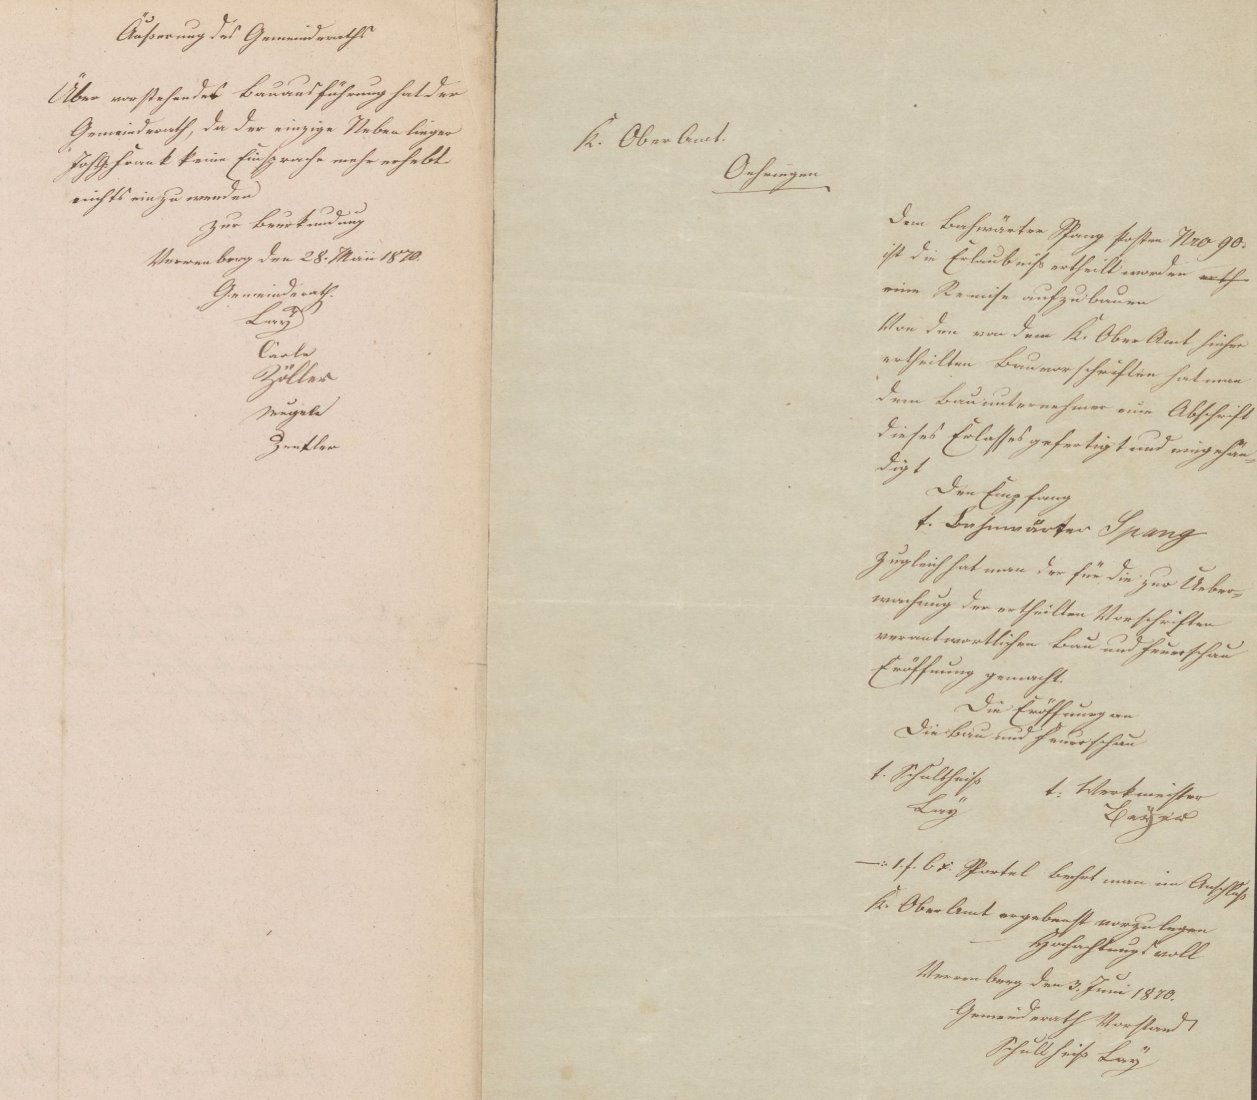 Äußerung des Gemeinderaths
Über vorstehendes Bauausführung hat der
Gemeinderath, da der einzige Nebenlieger
Johs. Frank keine Einsprache mehr erhebt
nichts einzuwenden
Zur Beurkundung
Verrenberg den 28. Mai 1870.
Gemeinderath.
Laÿ
Carle
Zöller
Zentler
K. OberAmt.
Oehringen
Dem Bahwärter Spang Posten Nro 90.
ist die Erlaubniß ertheilt worden erth
eine Remise aufzubauen
Von den von dem K. OberAmt hieher
ertheilten Bauvorschriften hat man
dem Bauunternehmer eine Abschrift
dieses Erlasses gefertigt und eingehän-
digt
Den Empfang
t. Bahnwärter Spang
Zugleich hat man der für die zur Ueber-
wachung der ertheilten Vorschriften
verantwortlichen Bau und Feuerschau
Eröffnung gemacht.
Die Eröffnung an
Die Bau und Feuerschau
t. Schultheiß
Laÿ
t. Werkmeister
—: 1. f. 6 x. Sportel beehrt man im Anschluß
K. OberAmt ergebenst vorzulegen
Hochachtungsvoll
Verrenberg den 3. Juni 1870.
Gemeinderath Vorstand
Schultheiß Laÿ